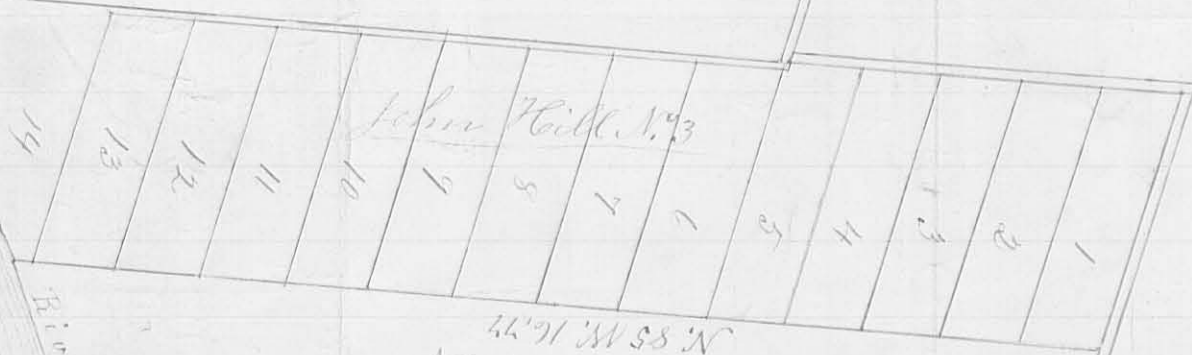 John Hill No. 3
14 13 12 11 10 9 8 7 6 5 4 3 2 1
N. 85 W. 16.77